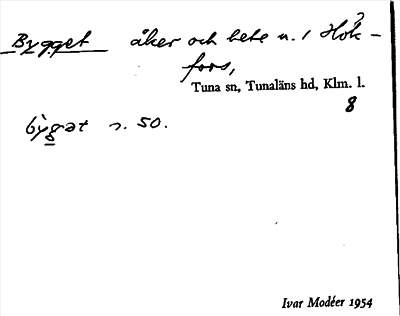 Bygget åker och bete n. 1 Hök-
fors,
Tuna sn, Tunaläns hd, Klm. l.
8
bỳgət n. 50.
Ivar Modéer 1954